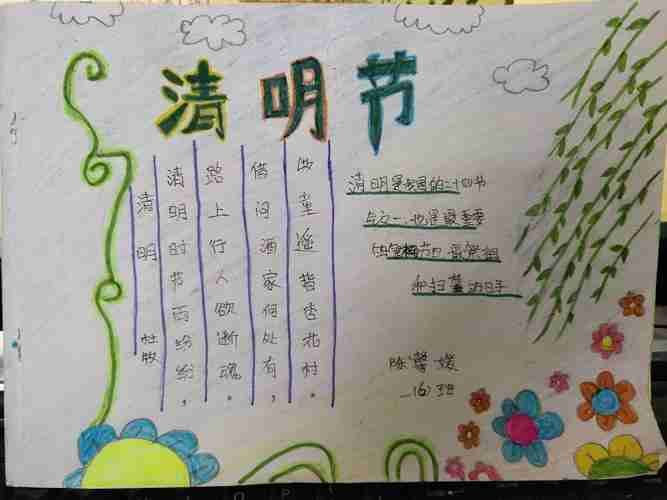 清明节
清明 杜牧
清明时节雨纷纷，
路上行人欲断魂。
借问酒家何处有，
童遥指杏花村。
清明是我国的二十四节
气之一，也是最重要
的祭祀节日，是祭祖
和扫墓的日子
陈馨媛
一(6)班